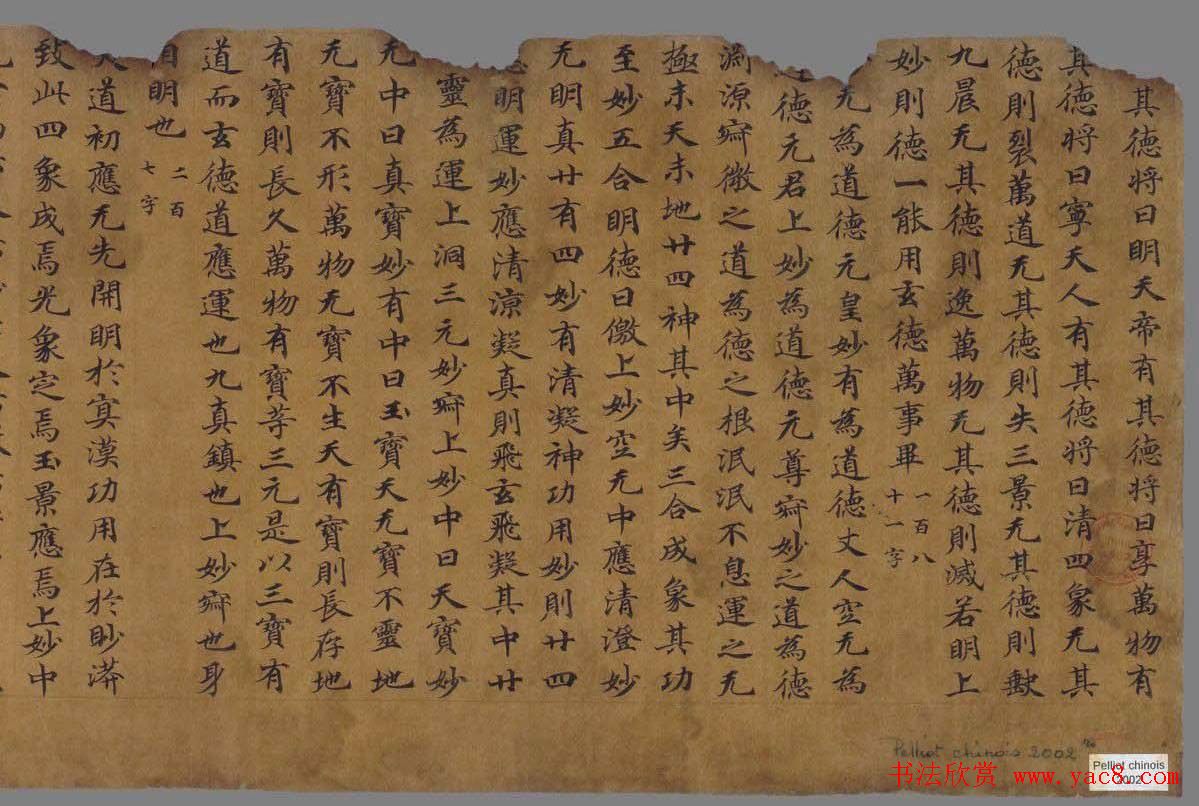 其德将曰明天帝有其德将曰享萬物有
其德将曰寧天人有其德将曰清四象无其
德則裂萬道无其德則失三景无其德則
九晨无其德則逸萬物无其德則滅若明上
妙則德一能用玄德萬事畢
一百八
十一字
无為道德元皇妙有為道德丈人空无為
德元君上妙為道德元尊寂妙之道為德
渊源寂微之道為德之根泯泯不息運之无
極未天未地廿四神其中矣三合成象其功
至妙五合明德曰儌上妙空无中應清澄妙
无明真廿有四妙有清凝神功用妙則廿四
明運妙應清凉凝真則飛玄飛凝其中廿
靈為運上洞三元妙寂上妙中曰天寶妙
无中曰真寶妙有中曰玉寶天无寶不靈地
无寶不形萬物无寶不生天有寶則長存地
有寶則長久萬物有寶等三元是以三寶有
道而玄德道應運也九真鎮也上妙寂也身
明也
二百
七字
道初應无先開明於㝠漠功用在於眇漭
致此四象成焉光象定焉玉景應焉上妙中
Pelliot chinois 2002
Pelliot chinois
2002
书法欣赏 www.yac8.com